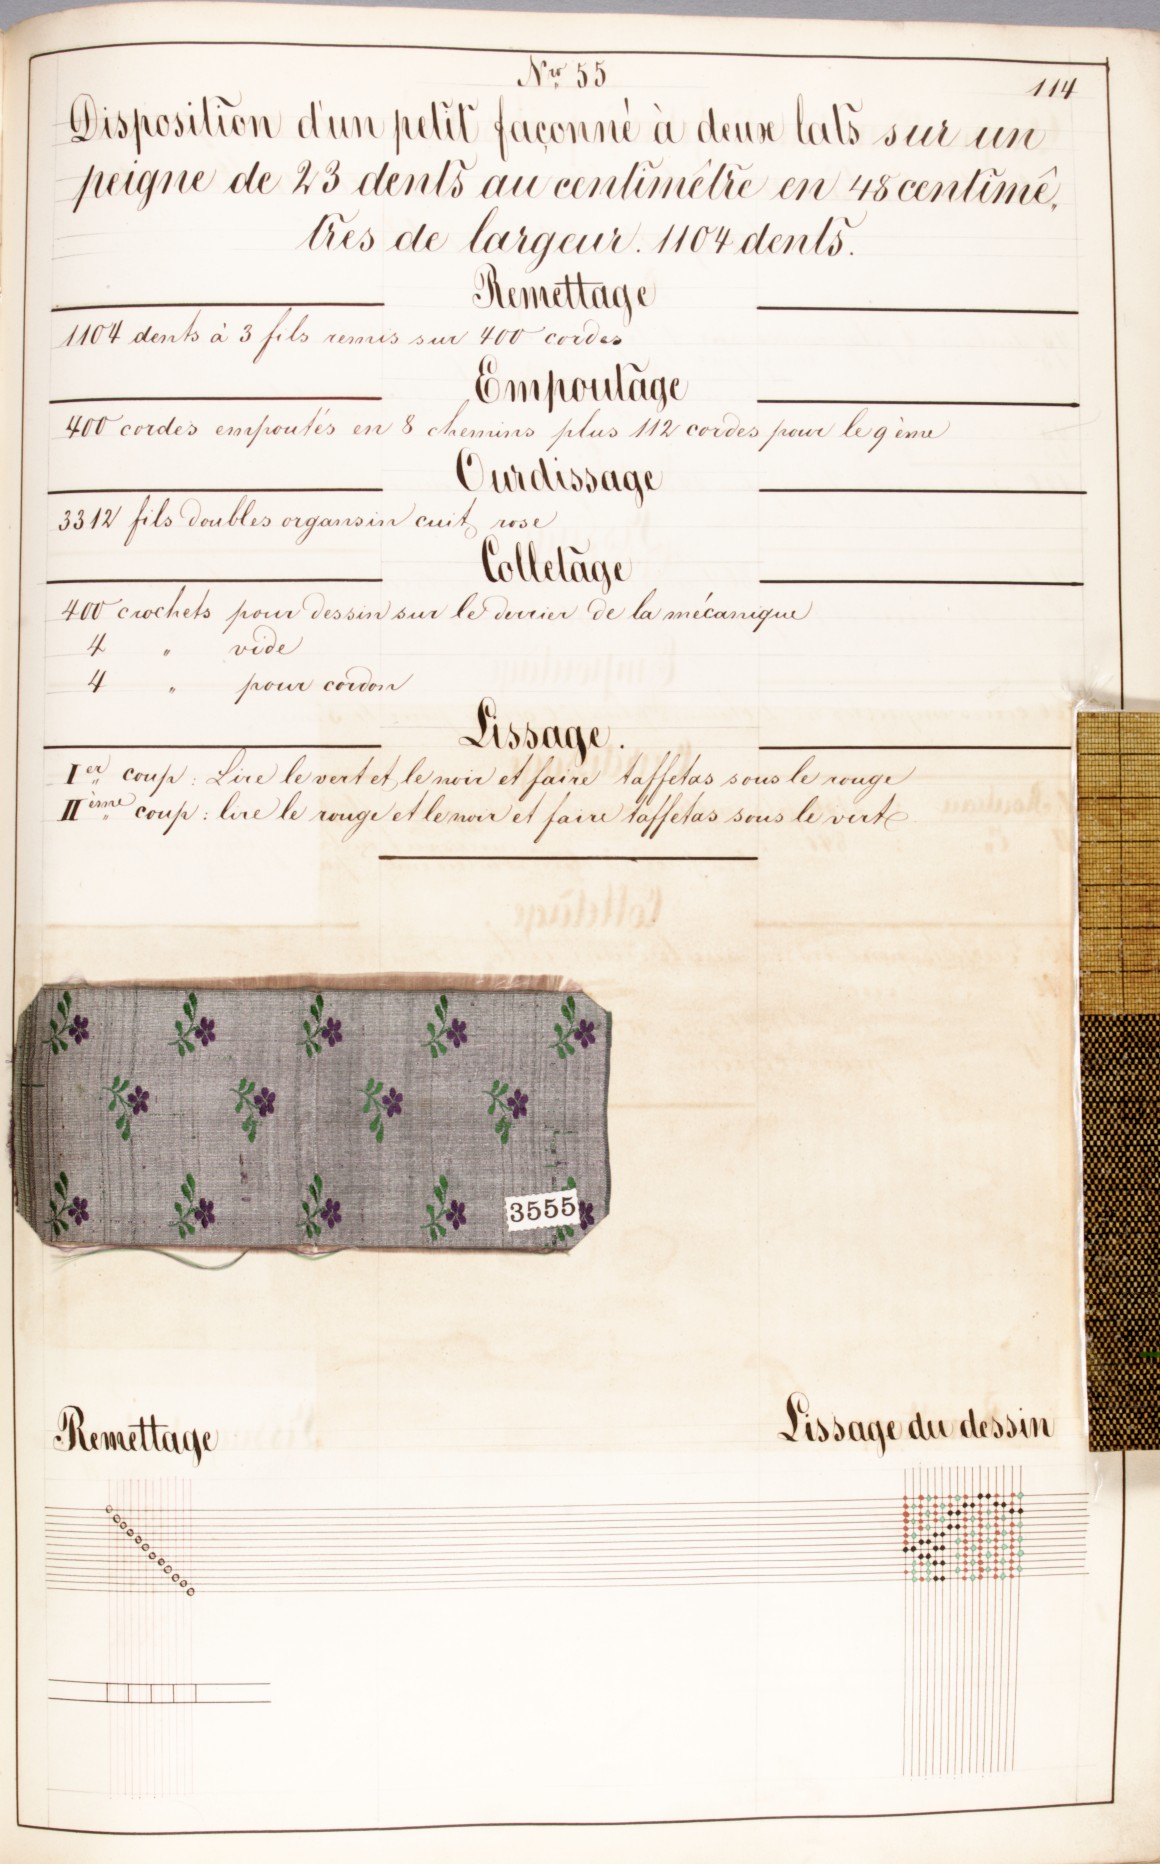 Nro 55
114
Disposition d'un petit façonné à deux lats sur un
peigne de 23 dents au centimêtre en 48 centimê,
tres de largeur. 1104 dents.
Remettage
1104 dents à 3 fils remis sur 400 cordes
Empoutage
400 cordes empoutés en 8 chemins plus 112 cordes pour le 9ème
Ourdissage
3312 fils doubles organsin cuit rose
Colletage
400 crochets pour dessin sur le derrier de la mécanique
4 " vide
4 " pour cordon
Lissage.
Ier coup: Lire le vert et le noir et faire taffetas sous le rouge
IIème coup: lire le rouge et le noir et faire taffetas sous le vert
3555
Remettage
Lissage du dessin